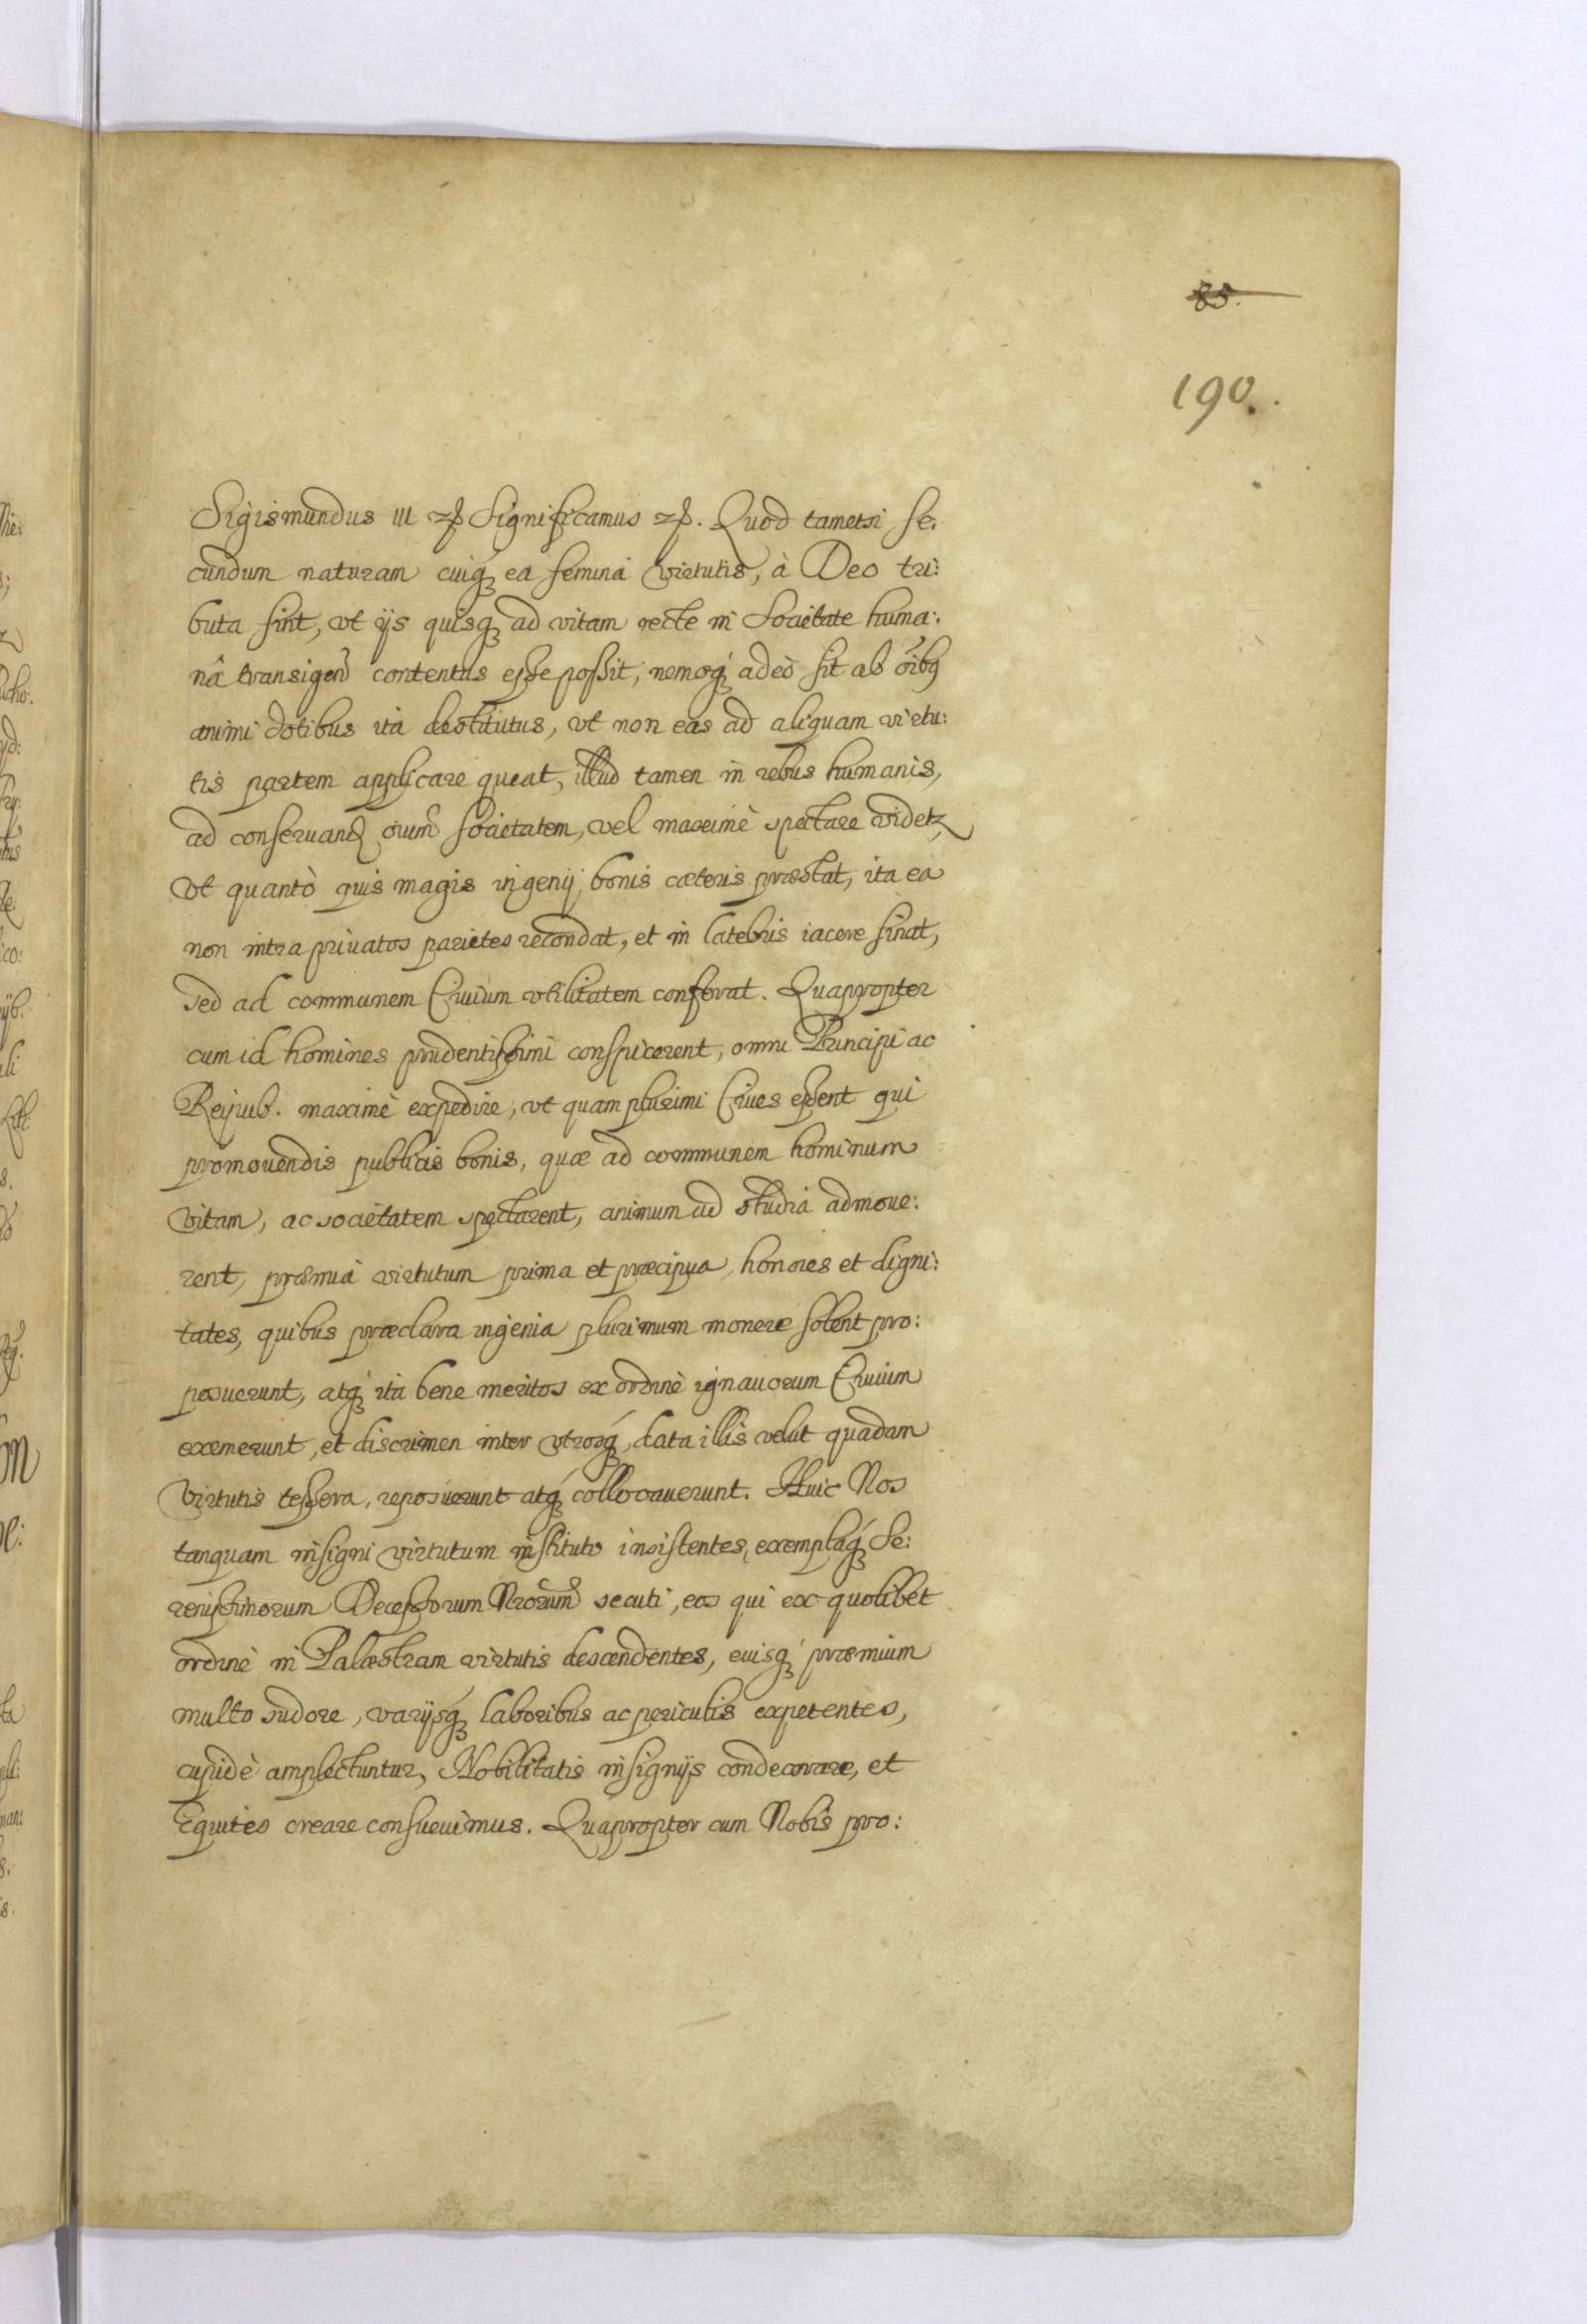 85.
190.
Sigismundus III etc Significamus etc. Quod tametsi se:
cundum naturam cuiq́ꝫ ea semina virtutis, à Deo tri:
buta sint, vt ijs quisqꝫ ad vitam recte in Societate huma:
nâ transigend contentus esse possit, nemoq́ꝫ adeò sit ab oı̃bꝯ
animi dotibus ita destitutus, vt non eas ad aliquam virtu:
tis partem applicare queat, illud tamen in rebus humanis,
ad conseruand ouim̃ societatem, vel maximè spectare videtꝛ,
vt quantò quis magis ingenij bonis cæteris præstat, ita ea
non intra priuatos parietes recondat, et in latebris iacere sinat,
sed ad communem Ciuium vtilitatem conferat. Quapropter
cum id homines prudentissimi conspicerent, omni Principi ac
Reipub. maximè expedire, vt quam plurimi Ciues essent qui
promouendis publicis bonis, quæ ad communem hominum
vitam, ac societatem spectarent, animum ad studia admoue:
rent, præmia virtutum prima et præcipua, honores et digni:
tates, quibus præclara ingenia plurimum monere solent pro:
posuerunt, atq́ꝫ ita bene meritos ex ordine ignauorum Ciuium
exemerunt, et discrimen inter vtrosq́ꝫ, data illis velut quadam
virtutis tessera, reposuerunt atq́ꝫ collocauerunt. Huic Nos
tanquam insigni virtutum instituto insistentes, exemplaq́ꝫ Se:
renissimorum Decessorum Nrorum̃ secuti, eos qui ex quolibet
ordine in Palæstram virtutis descendentes, euisq́ꝫ præmium
multo sudore, varijsq́ꝫ laboribus ac periculis expetentes,
cupidè amplectuntur, Nobilitatis insignijs condecorare, et
Equites creare consueuimus. Quapropter cum Nobis pro: